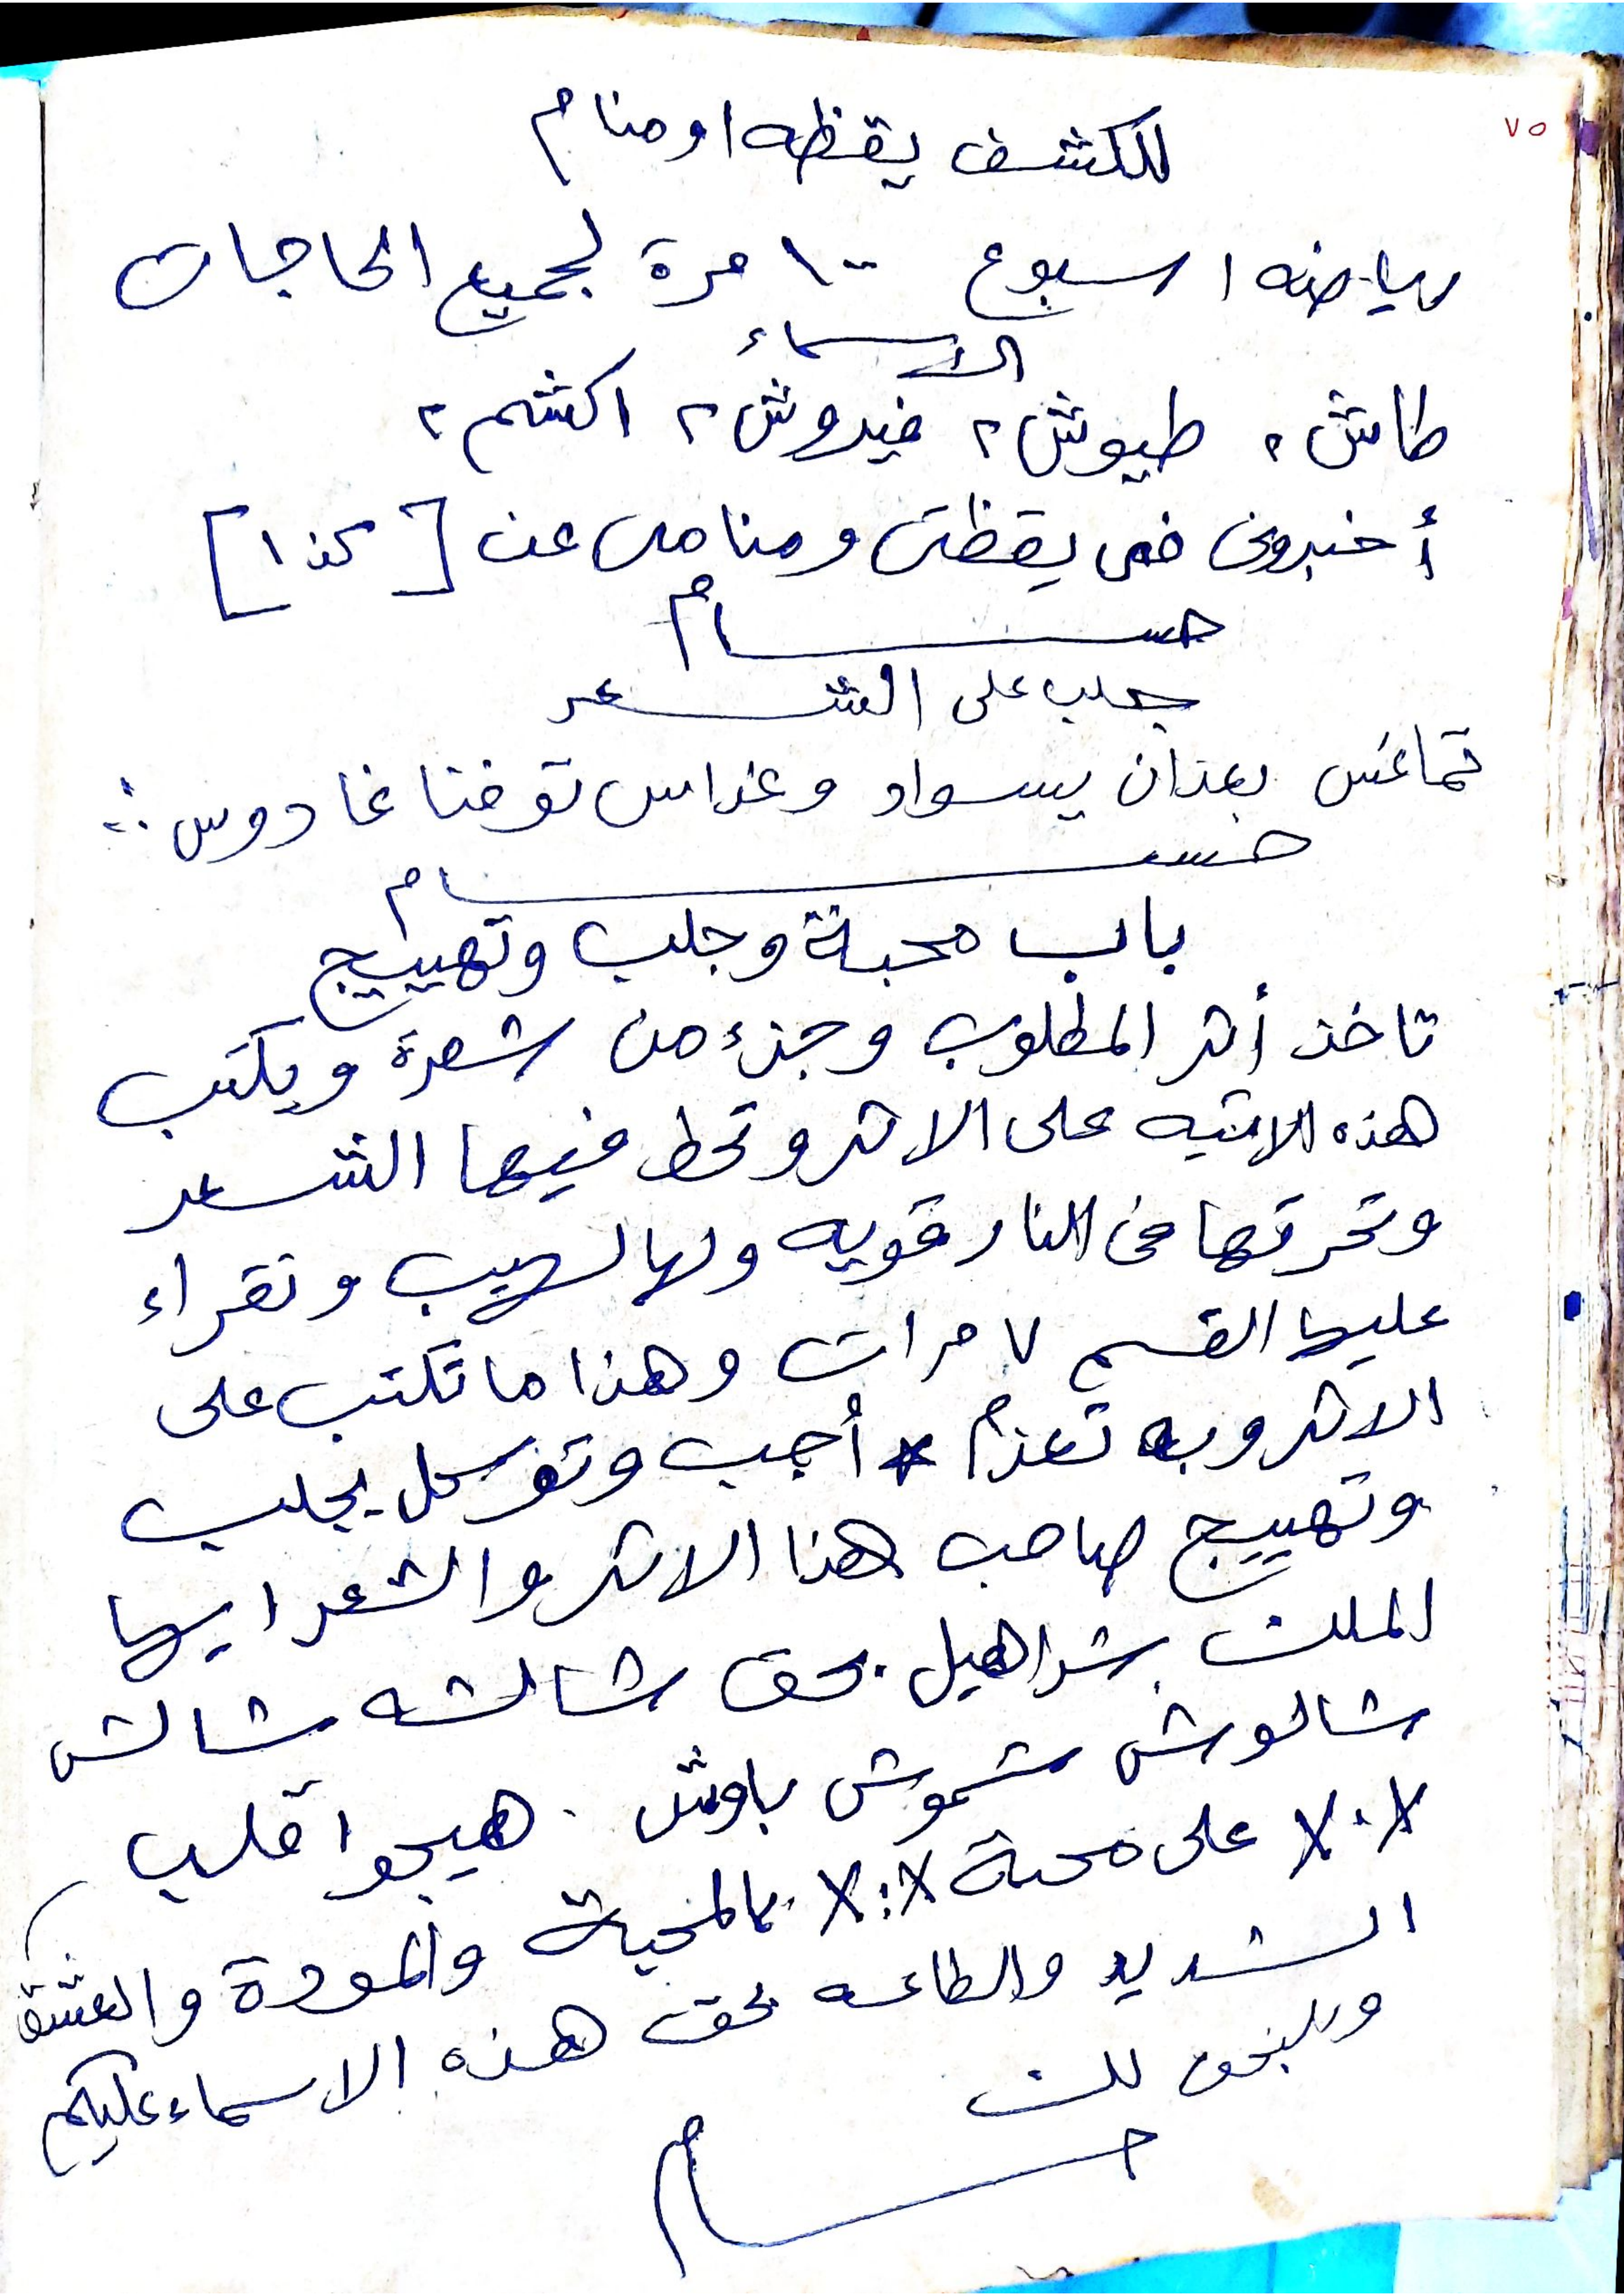 ٧٥
للكشف يقظه او منام
رياضه اسبوع ١٠٠ مرة لجميع الحاجات
الاسماء
طاش ٢ طيوش ٢ فيروش ٢ اكشم ٢
أخبرونى فى يقظتى ومنامى عن [كذا]
حسام
جلب على الشعر
تماغس بعزان يسواد وغراس توفنا غادوس
حسام
باب محبة وجلب وتهييج
تاخذ أثر المطلوب وجزء من شعرة ويكتب
هذه الاتيه على الاثر وتحط فيها الشعر
وتحرقها فى النار قويه ولها لهيب وتقراء
عليها القسم ٧ مرات وهذا ما تكتب على
الاثر وبه تعزم * أجب وتوكل بجلب
وتهييج صاحب هذا الاثر والشعر ايها
الملك شراهيل بحق شالشه شالش
شالوش شموش باوش . هيجوا قلب
X.X على محبة X:X بالمحبة والمودة والعشق
الشديد والطاعه بحق هذه الاسماء عليكم
لك
حسام